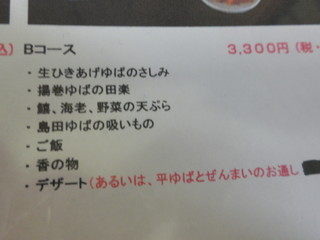 込) Bコース 3,300円 (税・
・生ひきあげゆばのさしみ
・揚巻ゆばの田楽
・鱚、海老、野菜の天ぷら
・島田ゆばの吸いもの
・ご飯
・香の物
・デザート(あるいは、平ゆばとぜんまいのお通し